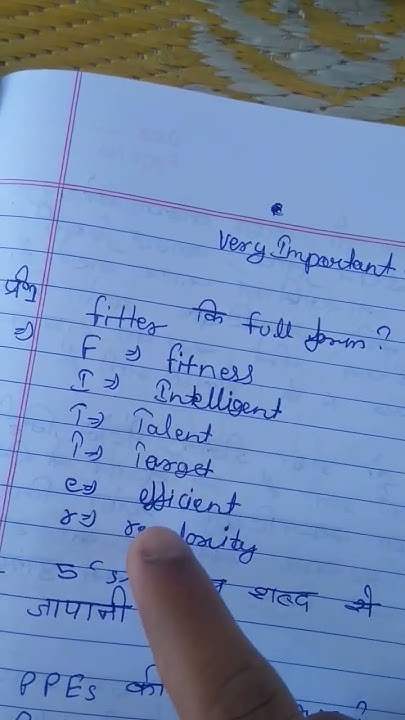 Very Important
प्रश्न fitter कि full form?
⇒ F ⇒ fitness
I ⇒ Intelligent
T ⇒ Talent
T ⇒ Target
e ⇒ efficient
r ⇒
5 'S' शब्द से
जापानी
PPEs की